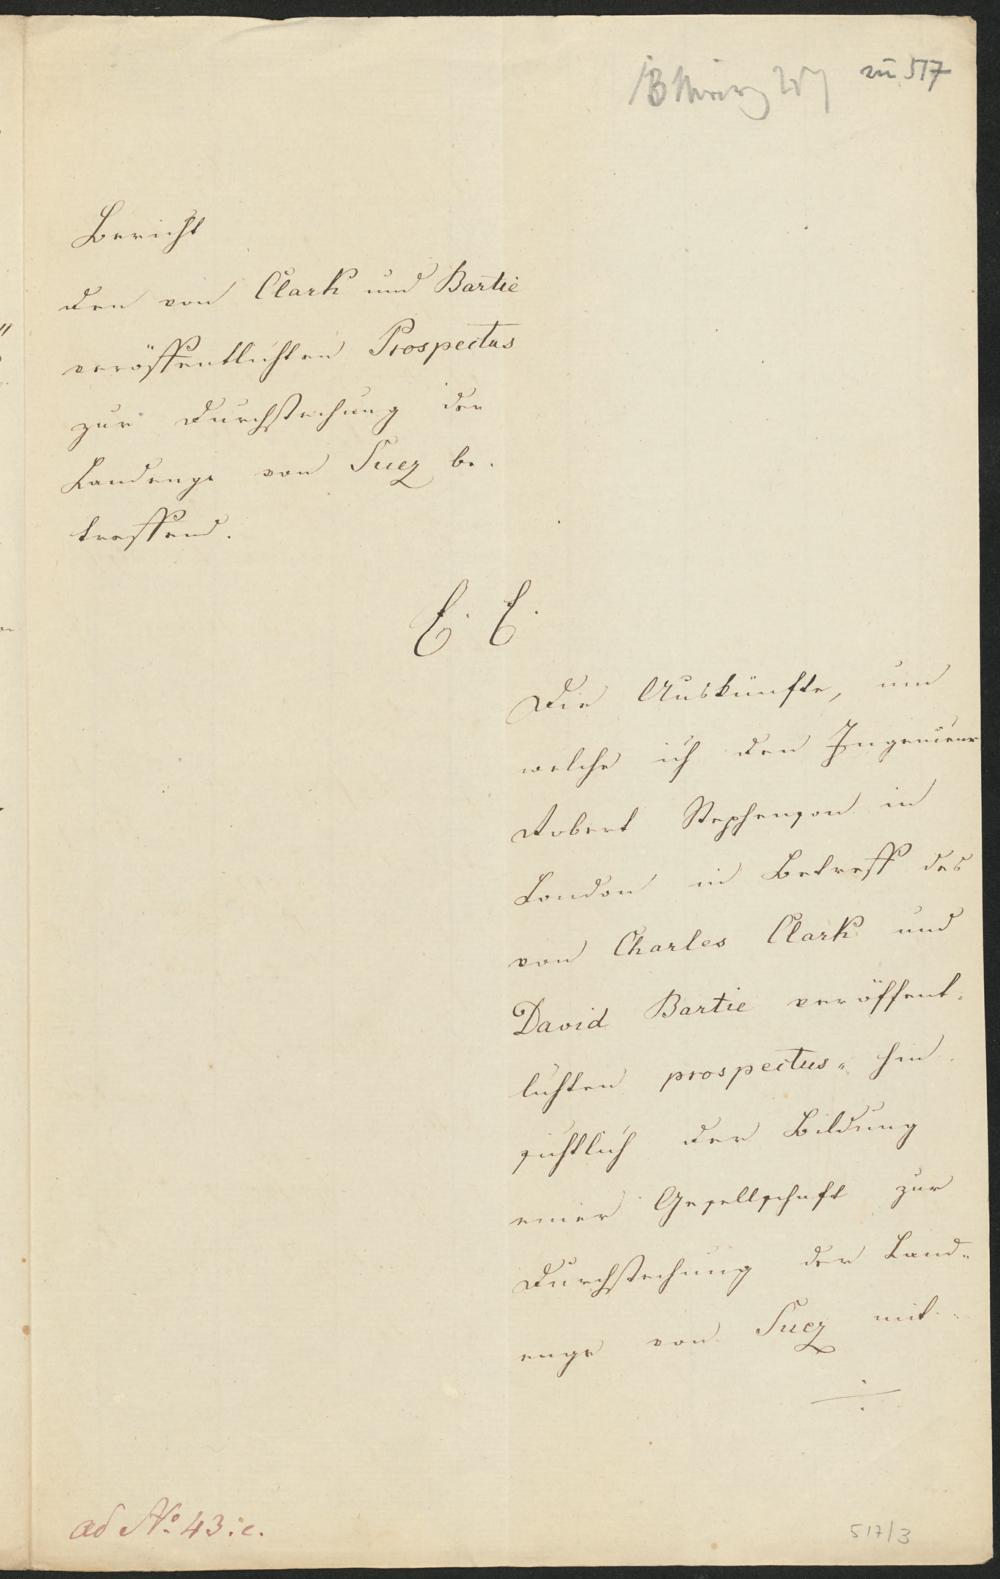 zu 517
Bericht
den von Clark und Bartie
veröffentlichten Prospectus
zur Durchstechung der
Landenge von Suez be-
treffend.
E. E.
Die Auskünfte, um
welche ich den Ingenieur
Robert Stephenson in
London in Betreff des
von Charles Clark und
David Bartie veröffent-
lichten prospectus hin-
sichtlich der Bildung
einer Gesellschaft zur
Durchstechung der Land-
enge von Suez mit-
ad No. 43:c.
517/3